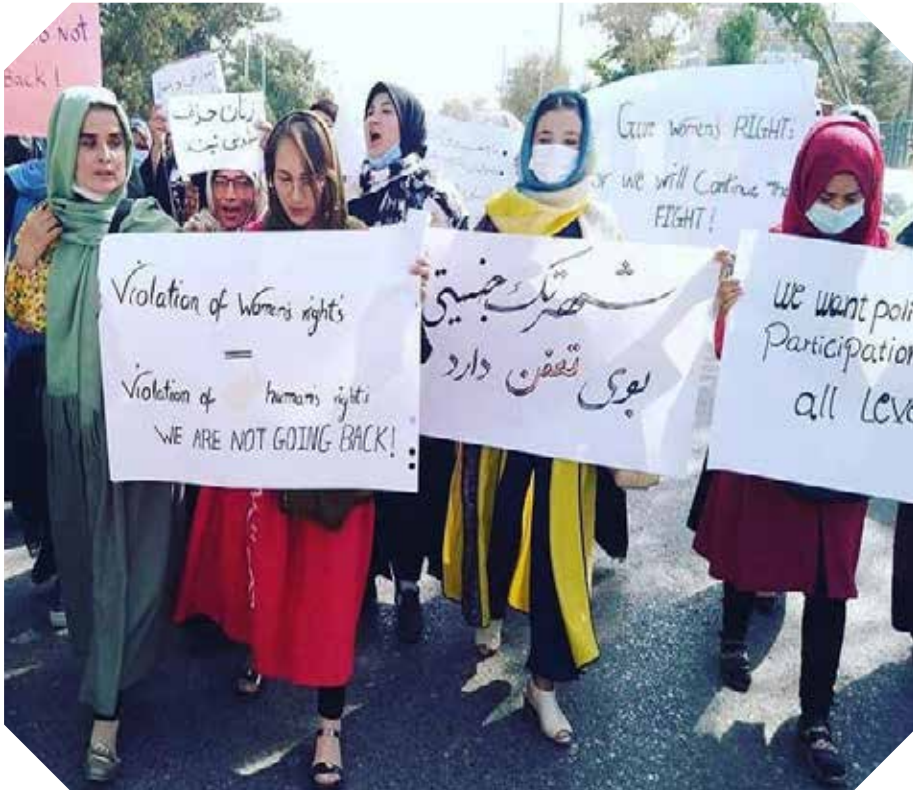 Do Not
Back!
زنان حذف
شدنی نیستند
Give women's RIGHTs
or we will Continue the
FIGHT!
Violation of Women's right's
=
Violation of human's right's
WE ARE NOT GOING BACK!
شهر تک جنسیتی
بوی تعفن دارد
we want poli
Participation
all Leve